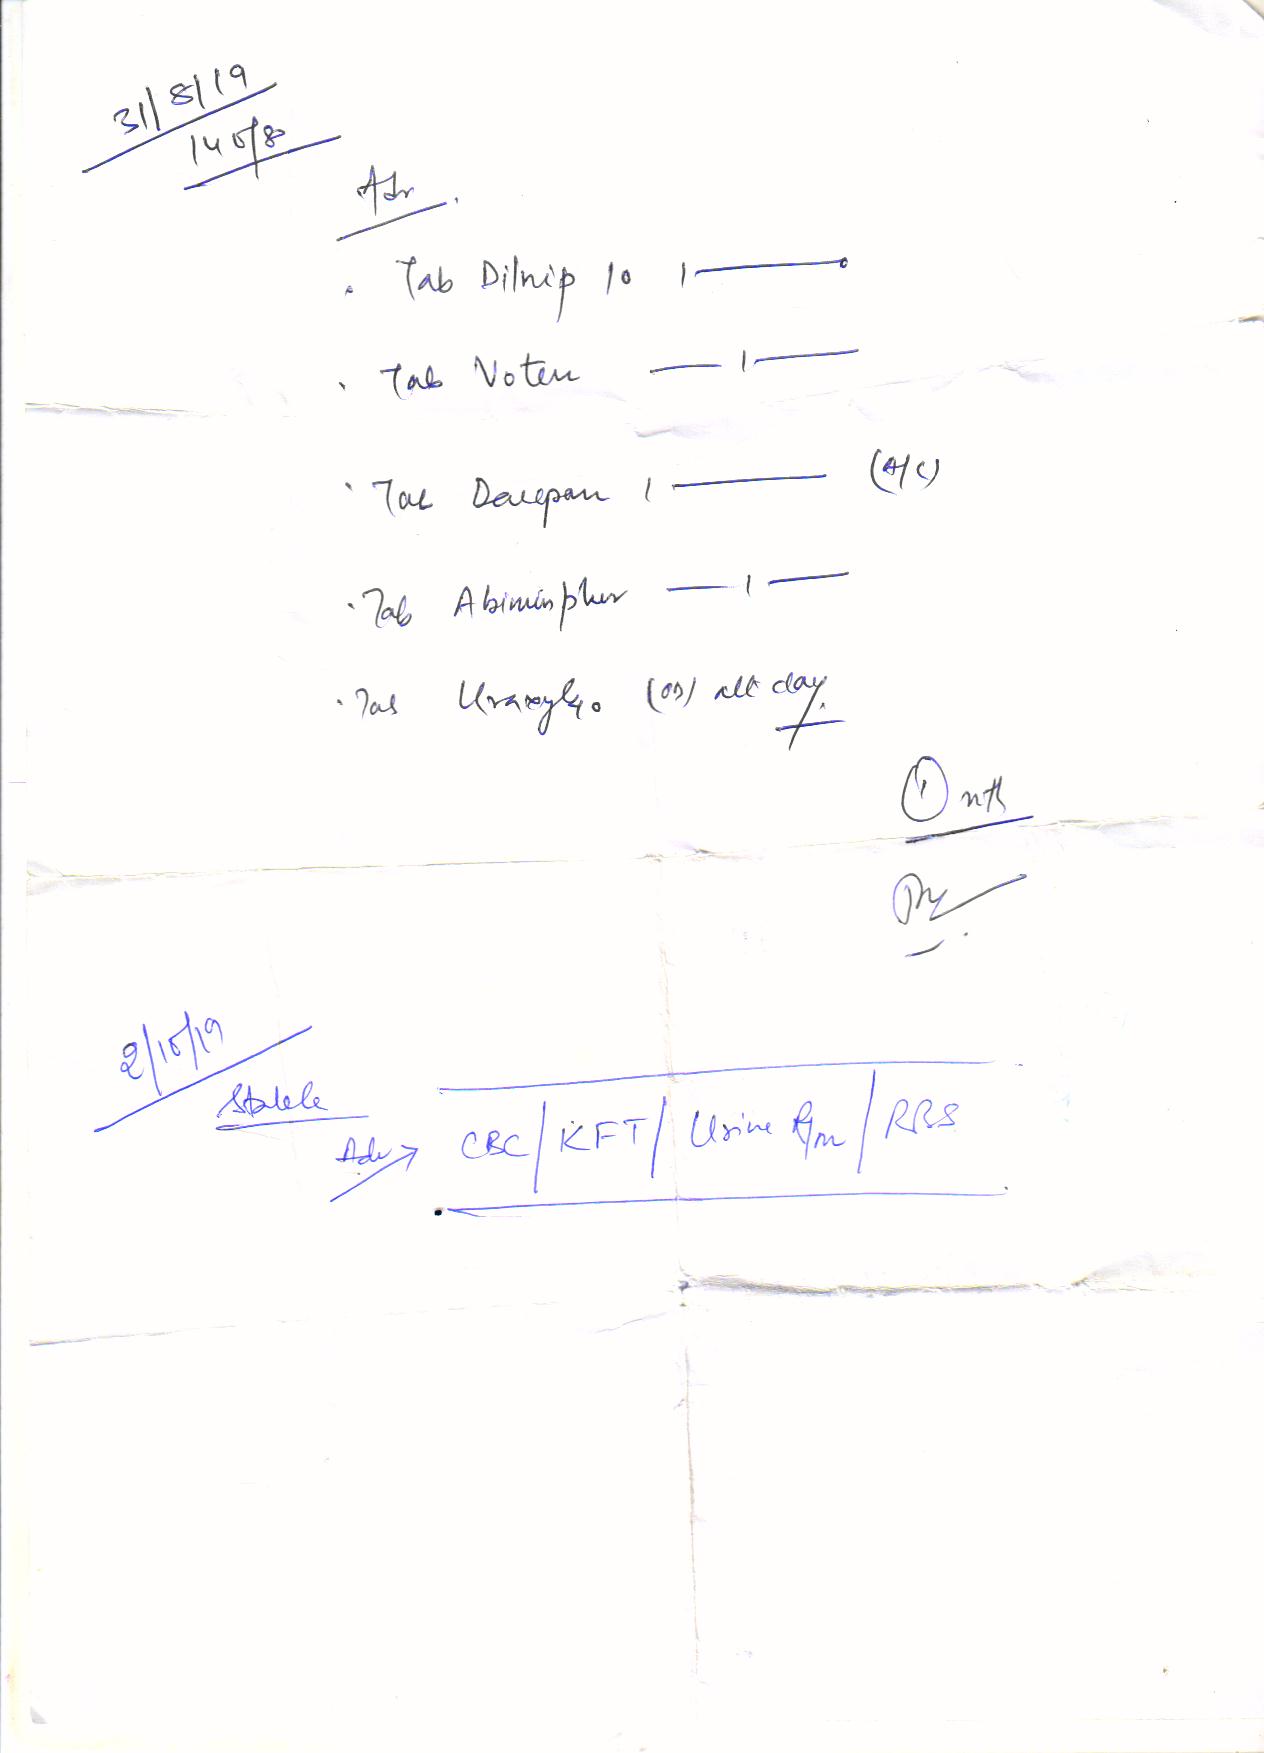 31/8/19
140/80
Adv.
. Tab Dilnip 10 1 ———
. Tab Voten — 1 —
. Tab 1 ——— (A/C)
. Tab — 1 —
. Tab (OD) alt day
1 mth
2/10/19
Stable
Adv → CBC / KFT / Urine R/m / RBS